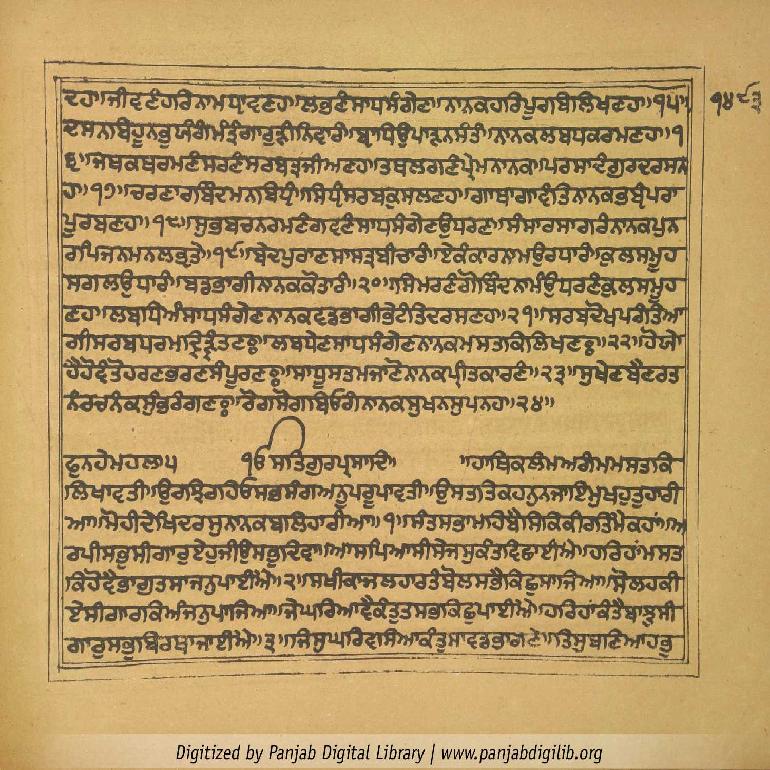 ਦਹਾ॥ਜੀਵਣੰਹਰਿਨਾਮਧ੍ਯਾਵਣਹਾ॥ਲਭਣੰਸਾਧਸੰਗੇਣਾ॥ਨਾਨਕਹਰਿਪੂਰਬਿਲਿਖਣਹਾ॥੧੫॥
ਦਸਨਾਬਿਹੂਨਭੁਯੰਗੰਮੰਤ੍ਰੰਗਾਰੁੜੀਨਿਵਾਰੰ॥ਬ੍ਯਾਧਿਉਪਾੜਨਸੰਤੰ॥ਨਾਨਕਲਬਧਕਰਮਣਹਾ॥੧
੬॥ਜਥਕਥਰਮਣੰਸਰਣੰਸਰਬਤ੍ਰਜੀਅਣਹਾ॥ਤਥਲਗਣੰਪ੍ਰੇਮਨਾਨਕ॥ਪਰਸਾਦੰਗੁਰਦਰਸਨ
ਹਾ॥੧੭॥ਚਰਣਾਰਬਿੰਦਮਨਬਿਧੰ॥ਸਿਧੰਸਰਬਕੁਸਲਣਹਾ॥ਗਾਥਾਗਾਵੰਤਿਨਾਨਕਭਬੰਪਰਾ
ਪੂਰਬਣਹਾ॥੧੮॥ਸੁਭਬਚਨਰਮਣੰਗਵਣੰਸਾਧਸੰਗੇਣਉਧਰਣਾ॥ਸੰਸਾਰਸਾਗਰੰਨਾਨਕਪੁਨ
ਰਪਿਜਨਮਨਲਭ੍ਯਤੇ॥੧੯॥ਬੇਦਪੁਰਾਣਸਾਸਤ੍ਰਬੀਚਾਰੰ॥ਏਕੰਕਾਰਨਾਮਉਰਧਾਰੰ॥ਕੁਲਸਮੂਹ
ਸਗਲਉਧਾਰੰ॥ਬਡਭਾਗੀਨਾਨਕਕੋਤਾਰੰ॥੨੦॥ਸਿਮਰਣੰਗੋਬਿੰਦਨਾਮੰਉਧਰਣੰਕੁਲਸਮੂਹ
ਣਹਾ॥ਲਬਧਿਅੰਸਾਧਸੰਗੇਣਨਾਨਕਵਡਭਾਗੀਭੇਟੰਤਿਦਰਸਣਹਾ॥੨੧॥ਸਰਬਦੋਖਪਰੰਤਿਆ
ਗੀਸਰਬਧਰਮਦ੍ਰਿੜੰਤਣਃ॥ਲਬਧੇਣਸਾਧਸੰਗੇਣਨਾਨਕਮਸਤਕਿਲਿਖਣਃ॥੨੨॥ਹੋਯੋ
ਹੈਹੋਵੰਤੋਹਰਣਭਰਣਸੰਪੂਰਣਃ॥ਸਾਧੂਸਤਮਜਾਣੋਨਾਨਕਪ੍ਰੀਤਕਾਰਣੰ॥੨੩॥ਸੁਖੇਣਬੈਣਰਤ
ਨੰਰਚਨੰਕਸੁੰਭਰੰਗਣਃ॥ਰੋਗਸੋਗਬਿਓਗੰਨਾਨਕਸੁਖਨਸੁਪਨਹ॥੨੪॥
ਫੁਨਹੇਮਹਲਾ੫ ੴਸਤਿਗੁਰਪ੍ਰਸਾਦਿ॥ ॥ਹਾਥਿਕਲੰਮਅਗੰਮਮਸਤਕਿ
ਲਿਖਾਵਤੀ॥ਉਰਝਿਰਹਿਓਸਭਸੰਗਅਨੂਪਰੂਪਾਵਤੀ॥ਉਸਤਤਿਕਹਨੁਨਜਾਇਮੁਖਹੁਤੁਹਾਰੀ
ਆ॥ਮੋਹੀਦੇਖਿਦਰਸੁਨਾਨਕਬਲਿਹਾਰੀਆ॥੧॥ਸੰਤਸਭਾਮਹਿਬੈਸਿਕਿਕੀਰਤਿਮੈਕਹਾਂ॥ਅ
ਰਪੀਸਭੁਸੀਗਾਰੁਏਹੁਜੀਉਸਭੁਦਿਵਾ॥ਆਸਪਿਆਸੀਸੇਜਸੁਕੰਤਿਵਿਛਾਈਐ॥ਹਰਿਹਾਂਮਸਤ
ਕਿਹੋਵੈਭਾਗੁਤਸਾਜਨੁਪਾਈਐ॥੨॥ਸਖੀਕਾਜਲਹਾਰਤੰਬੋਲਸਭੈਕਿਛੁਸਾਜਿਆ॥ਸੋਲਹਕੀ
ਏਸੀਗਾਰਕਿਅੰਜਨੁਪਾਜਿਆ॥ਜੇਘਰਿਆਵੈਕੰਤੁਤਸਭਕਿਛੁਪਾਈਐ॥ਹਰਿਹਾਂਕੰਤੈਬਾਝੁਸੀ
ਗਾਰੁਸਭੁਬਿਰਥਾਜਾਈਐ॥੩॥ਜਿਸੁਘਰਿਵਸਿਆਕੰਤੁਸਾਵਡਭਾਗਣੇ॥ਤਿਸੁਬਣਿਆਹਭੁ
Digitized by Panjab Digital Library | www.panjabdigilib.org